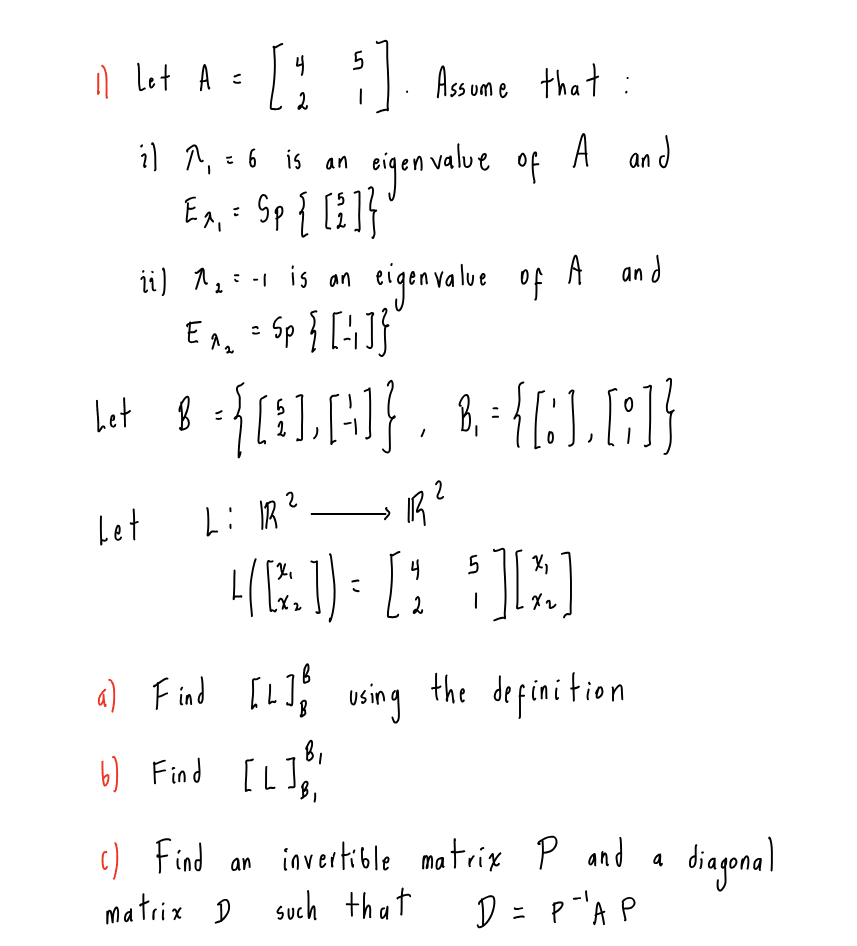 1) Let A = [4 5; 2 1]. Assume that :
i) λ₁ = 6 is an eigenvalue of A and
E_λ₁ = Sp { [5; 2] }
ii) λ₂ = -1 is an eigenvalue of A and
E_λ₂ = Sp { [1; -1] }
Let B = { [5; 2], [1; -1] }, B₁ = { [1; 0], [0; 1] }
Let L: ℝ² ⟶ ℝ²
L([x₁; x₂]) = [4 5; 2 1][x₁; x₂]
a) Find [L]_B^B using the definition
b) Find [L]_B₁^B₁
c) Find an invertible matrix P and a diagonal
matrix D such that D = P⁻¹AP